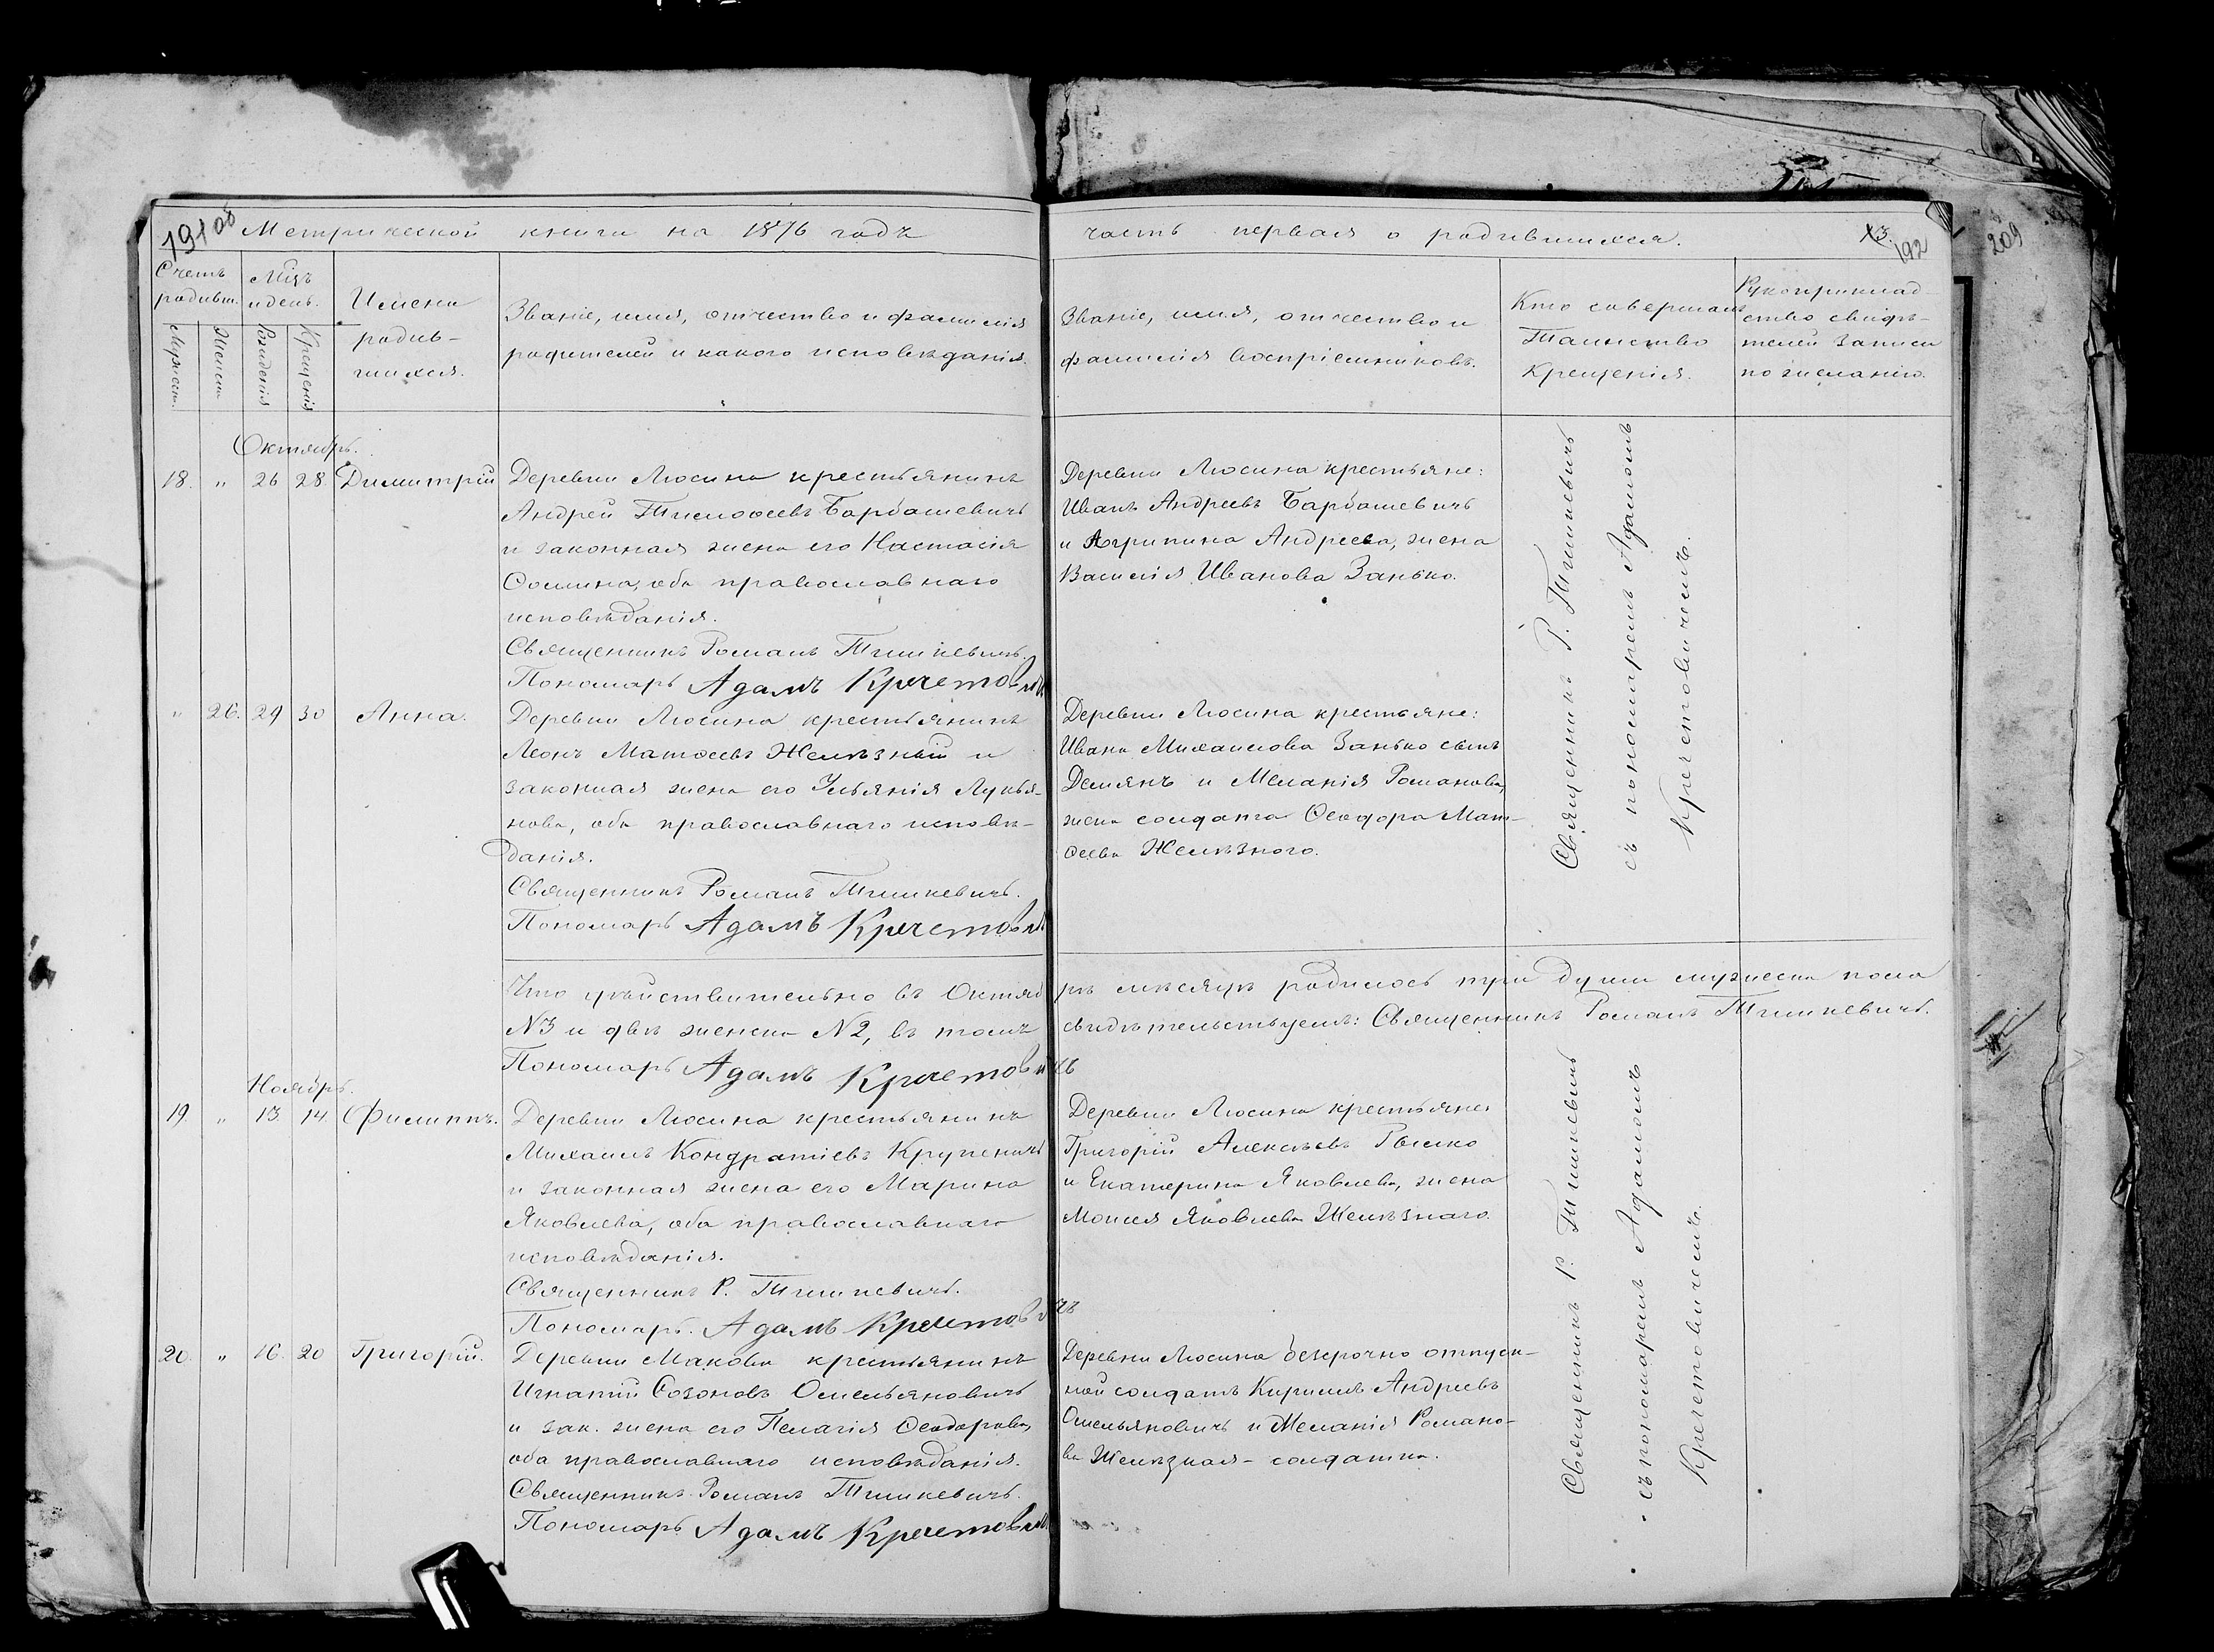 Метрической книги на 1876 годъ
часть первая о родившихся.
192
209
Счетъ родивш.
Мужеск.
Женск.
Мѣц и день.
Рожденія
Крещенія
Имена
родив-
шихся.
Званіе, имя, отчество и фамилія
родителей и какого исповѣданія.
Званіе, имя, отчество и
фамилія воспріемниковъ.
Кто совершалъ
Таинство
Крещенія.
Рукоприклад-
ство свидѣ-
телей записи
по желанію.
Октябрь.
18. " 26 28. Димитрій
Деревни Люсина крестьянинъ
Андрей Тимоѳеевъ Барбашевичъ
и законная жена его Настасія
Сомина, оба православнаго
исповѣданія.
Священникъ Романъ Тышкевичъ.
Пономарь Адамъ Кречетович
Деревни Люсина крестьяне:
Иванъ Андреевъ Барбашевичъ
и Агрипина Андреева, жена
Василія Иванова Занько.
Священникъ Р. Тышкевичъ
съ пономаремъ Адамомъ
Кречетовичемъ.
" 26. 29 30 Анна.
Деревни Люсина крестьянинъ
Леонъ Матѳеевъ Желѣзный и
законная жена его Ульянія Лукья-
нова, оба православнаго исповѣ-
данія.
Священникъ Романъ Тышкевичъ.
Пономарь Адамъ Кречетович
Деревни Люсина крестьяне:
Ивана Михаилова Занько сынъ
Демянъ и Меланія Романова,
жена солдата Ѳеодора Мат-
ѳеева Желѣзного.
Что дѣйствительно въ Октябрѣ мѣсяцѣ родилось три души мужеска пола
N3 и двѣ женска N2, въ томъ свидѣтельствуемъ: Священникъ Романъ Тышкевичъ.
Пономарь Адамъ Кречетовичъ
Ноябрь.
19. " 13. 14. Филиппъ.
Деревни Люсина крестьянинъ
Михаилъ Кондратіевъ Крупеничъ
и законная жена его Марина
Яковлева, оба православнаго
исповѣданія.
Священникъ Р. Тышкевичъ.
Пономарь. Адамъ Кречетовичъ
Деревни Люсина крестьяне:
Григорій Алексѣевъ Рышко
и Екатерина Яковлева, жена
Моисея Яковлева Желѣзнаго.
Священникъ Р. Тышкевичъ
съ пономаремъ Адамомъ
Кречетовичемъ.
20. " 16. 20 Григорій.
Деревни Макова крестьянинъ
Игнатій Созоновъ Омельяновичъ
и зак. жена его Пелагія Ѳеодорова,
оба православнаго исповѣданія.
Священникъ Романъ Тышкевичъ.
Пономарь Адамъ Кречетович
Деревни Люсина безсрочно отпуск-
ной солдатъ Кириллъ Андреевъ
Омельяновичъ и Меланія Романо-
ва Желѣзная - солдатка.